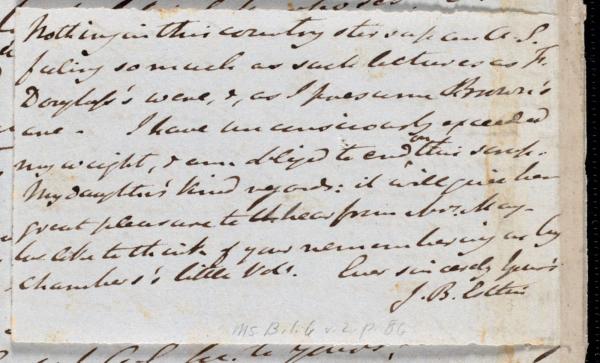 Nothing in this country stirs up anti S.
feeling so much as such lectures as F.
Douglass's were, &, as I presume Brown's
are - I have unconsciously exceeded
my weight, & am obliged to end on this scrap.
My daughter's kind regards: it will give her
great pleasure to hear from Mr. May -
we like to think of your remembering us by
Chambers's little Vols. Ever sincerely Yours
J. B. Estlin
Ms. B. 1. 6 v. 2, p. 86
to yours,